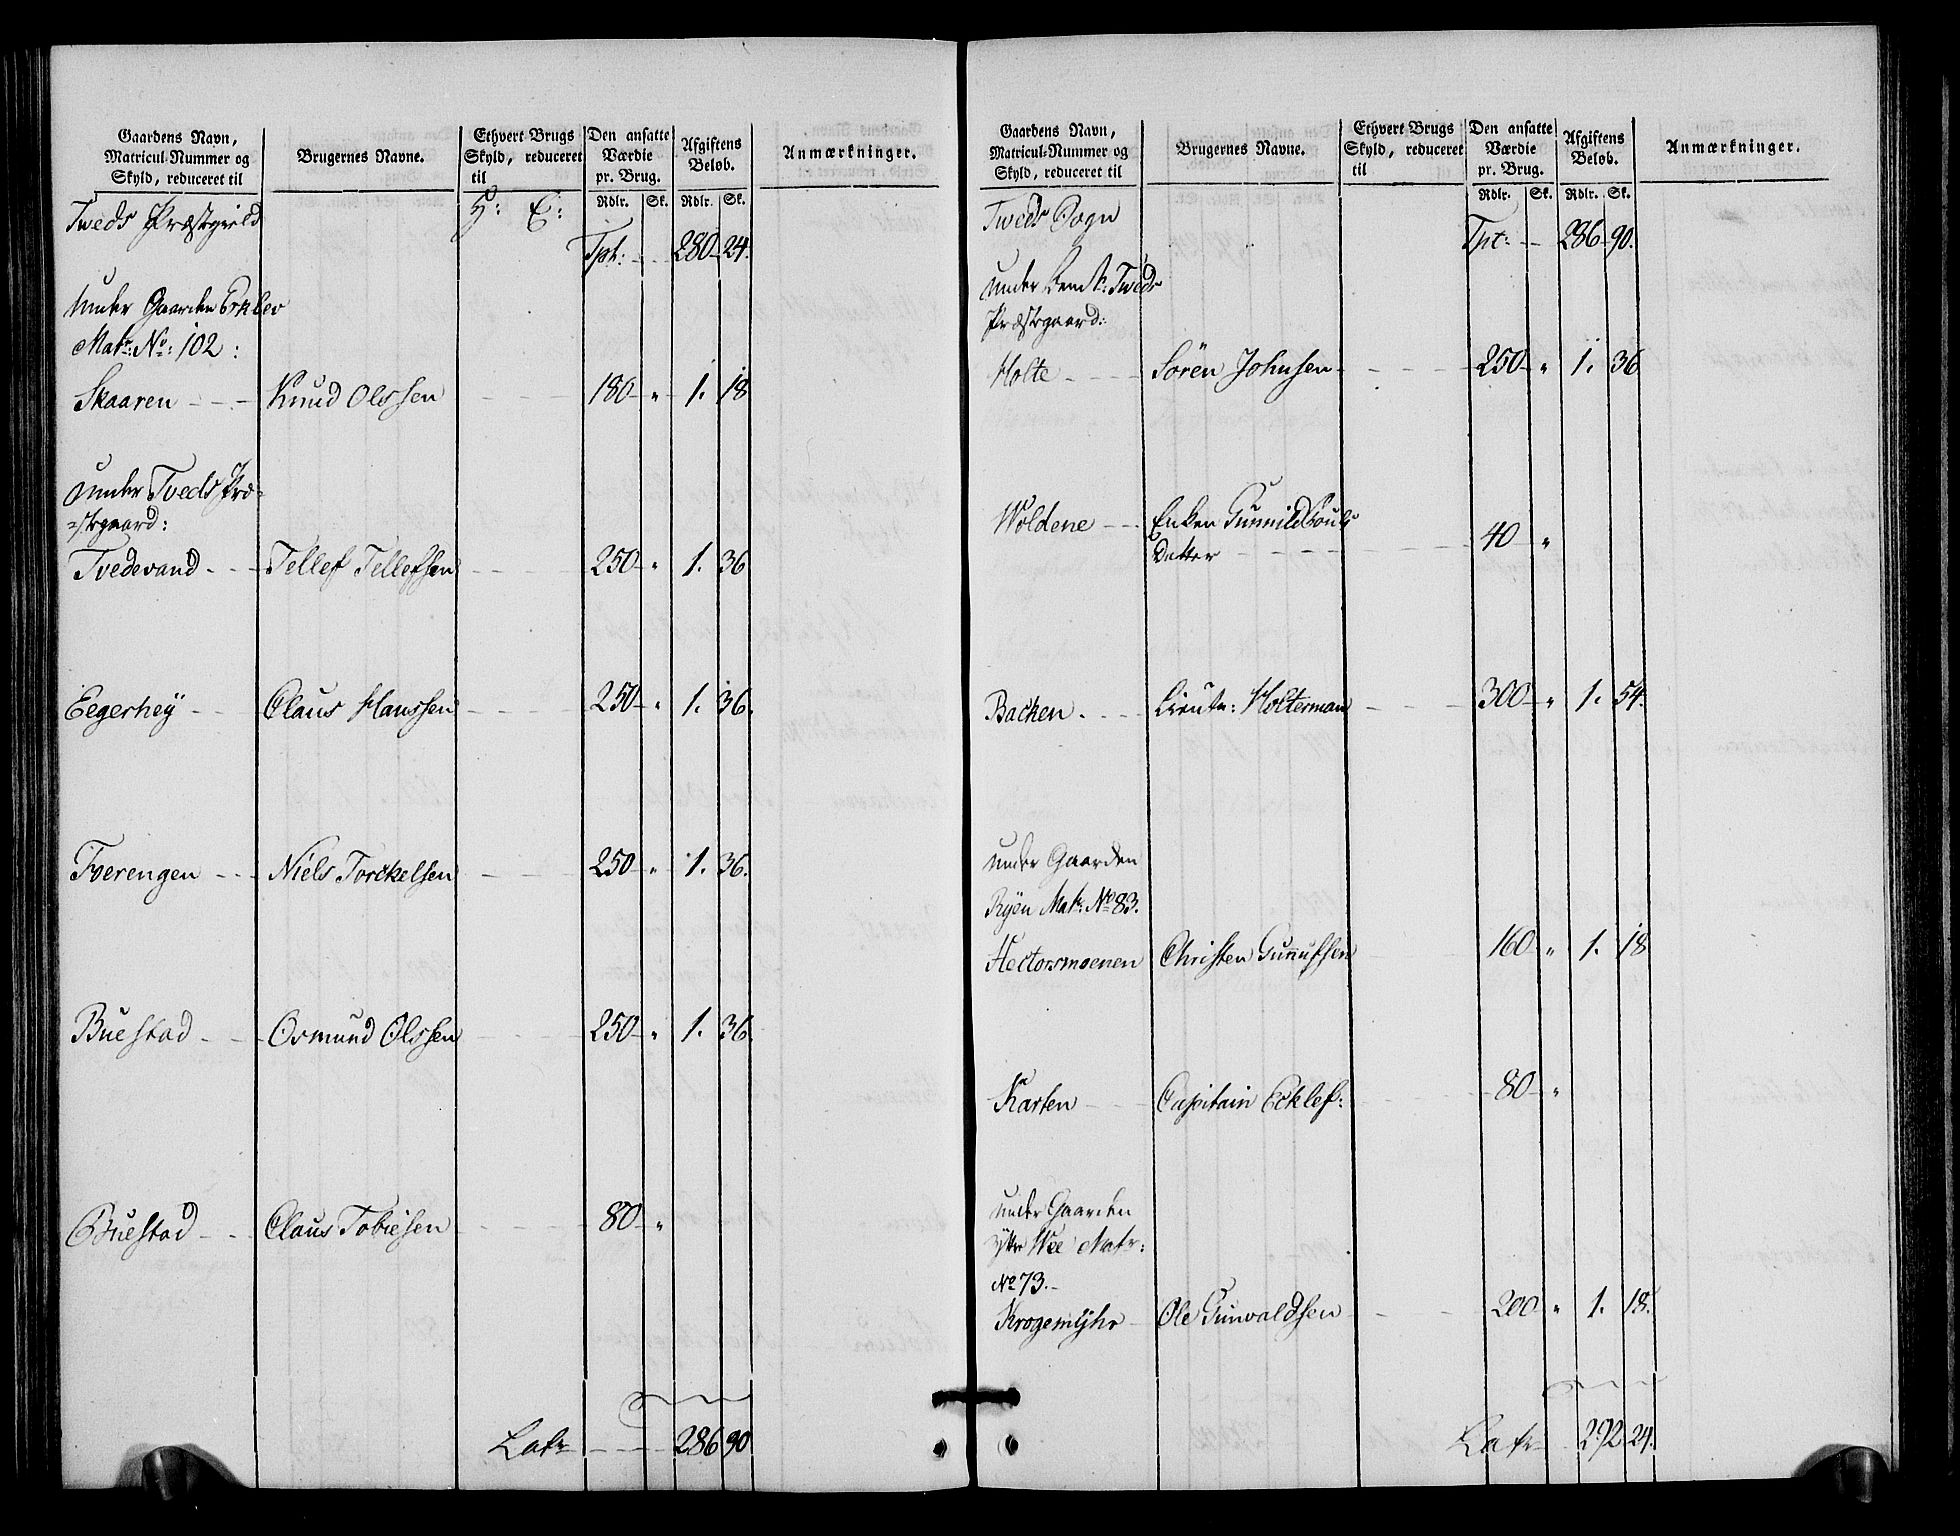 Gaardens Navn, Matricul-Nummer og Skyld, reduceret til | Brugernes Navne. | Ethvert Brugs Skyld, reduceret til | Den ansatte Værdie pr. Brug. | Afgiftens Beløb. | Anmærkninger.
Rdlr. Sk. Rdlr. Sk.
Tweds Præstegield H: E:
Tpt: 280 24.
Under Gaarden Eklev
Matr: No: 102:
Skaaren Knud Olssen 180 " 1. 18
Under Tveds Præ-
stegaard:
Tvedevand Tellef Tellefsen 250 " 1. 36
Eegerhey Claus Hanssen 250 " 1. 36.
Tverengen Niels Torckelsen 250 " 1. 36.
Buestad Osmund Olssen 250 " 1. 36.
Buestad Claus Tobiesen 80 "
Latr 286 90
Gaardens Navn, Matricul-Nummer og Skyld, reduceret til | Brugernes Navne. | Ethvert Brugs Skyld, reduceret til | Den ansatte Værdie pr. Brug. | Afgiftens Beløb. | Anmærkninger.
Rdlr. Sk. Rdlr. Sk.
Tweds Sogn
Tpt: 286 90.
Under Tweds
Præstegaard:
Holte Sören Johnsen 250 " 1. 36
Woldene Enken Gunnild Pouls
Datter 40 "
Backen Lieutn: Holterman 300 " 1. 54.
under Gaarden
Ryen Matr: No 83.
Hectorsmoenen Christen Gunnufsen 160 " 1. 18
Karten Capitain Ecklef: 80 "
under Gaarden
ytre Wee Matr:
No 73.
Krogemyhr Ole Gunvaldsen 200 " 1. 18.
Latr 292 24.